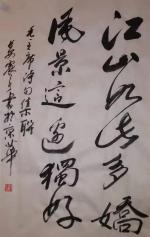 江山如此多嬌
風景這邊獨好
毛主席詩句集聯